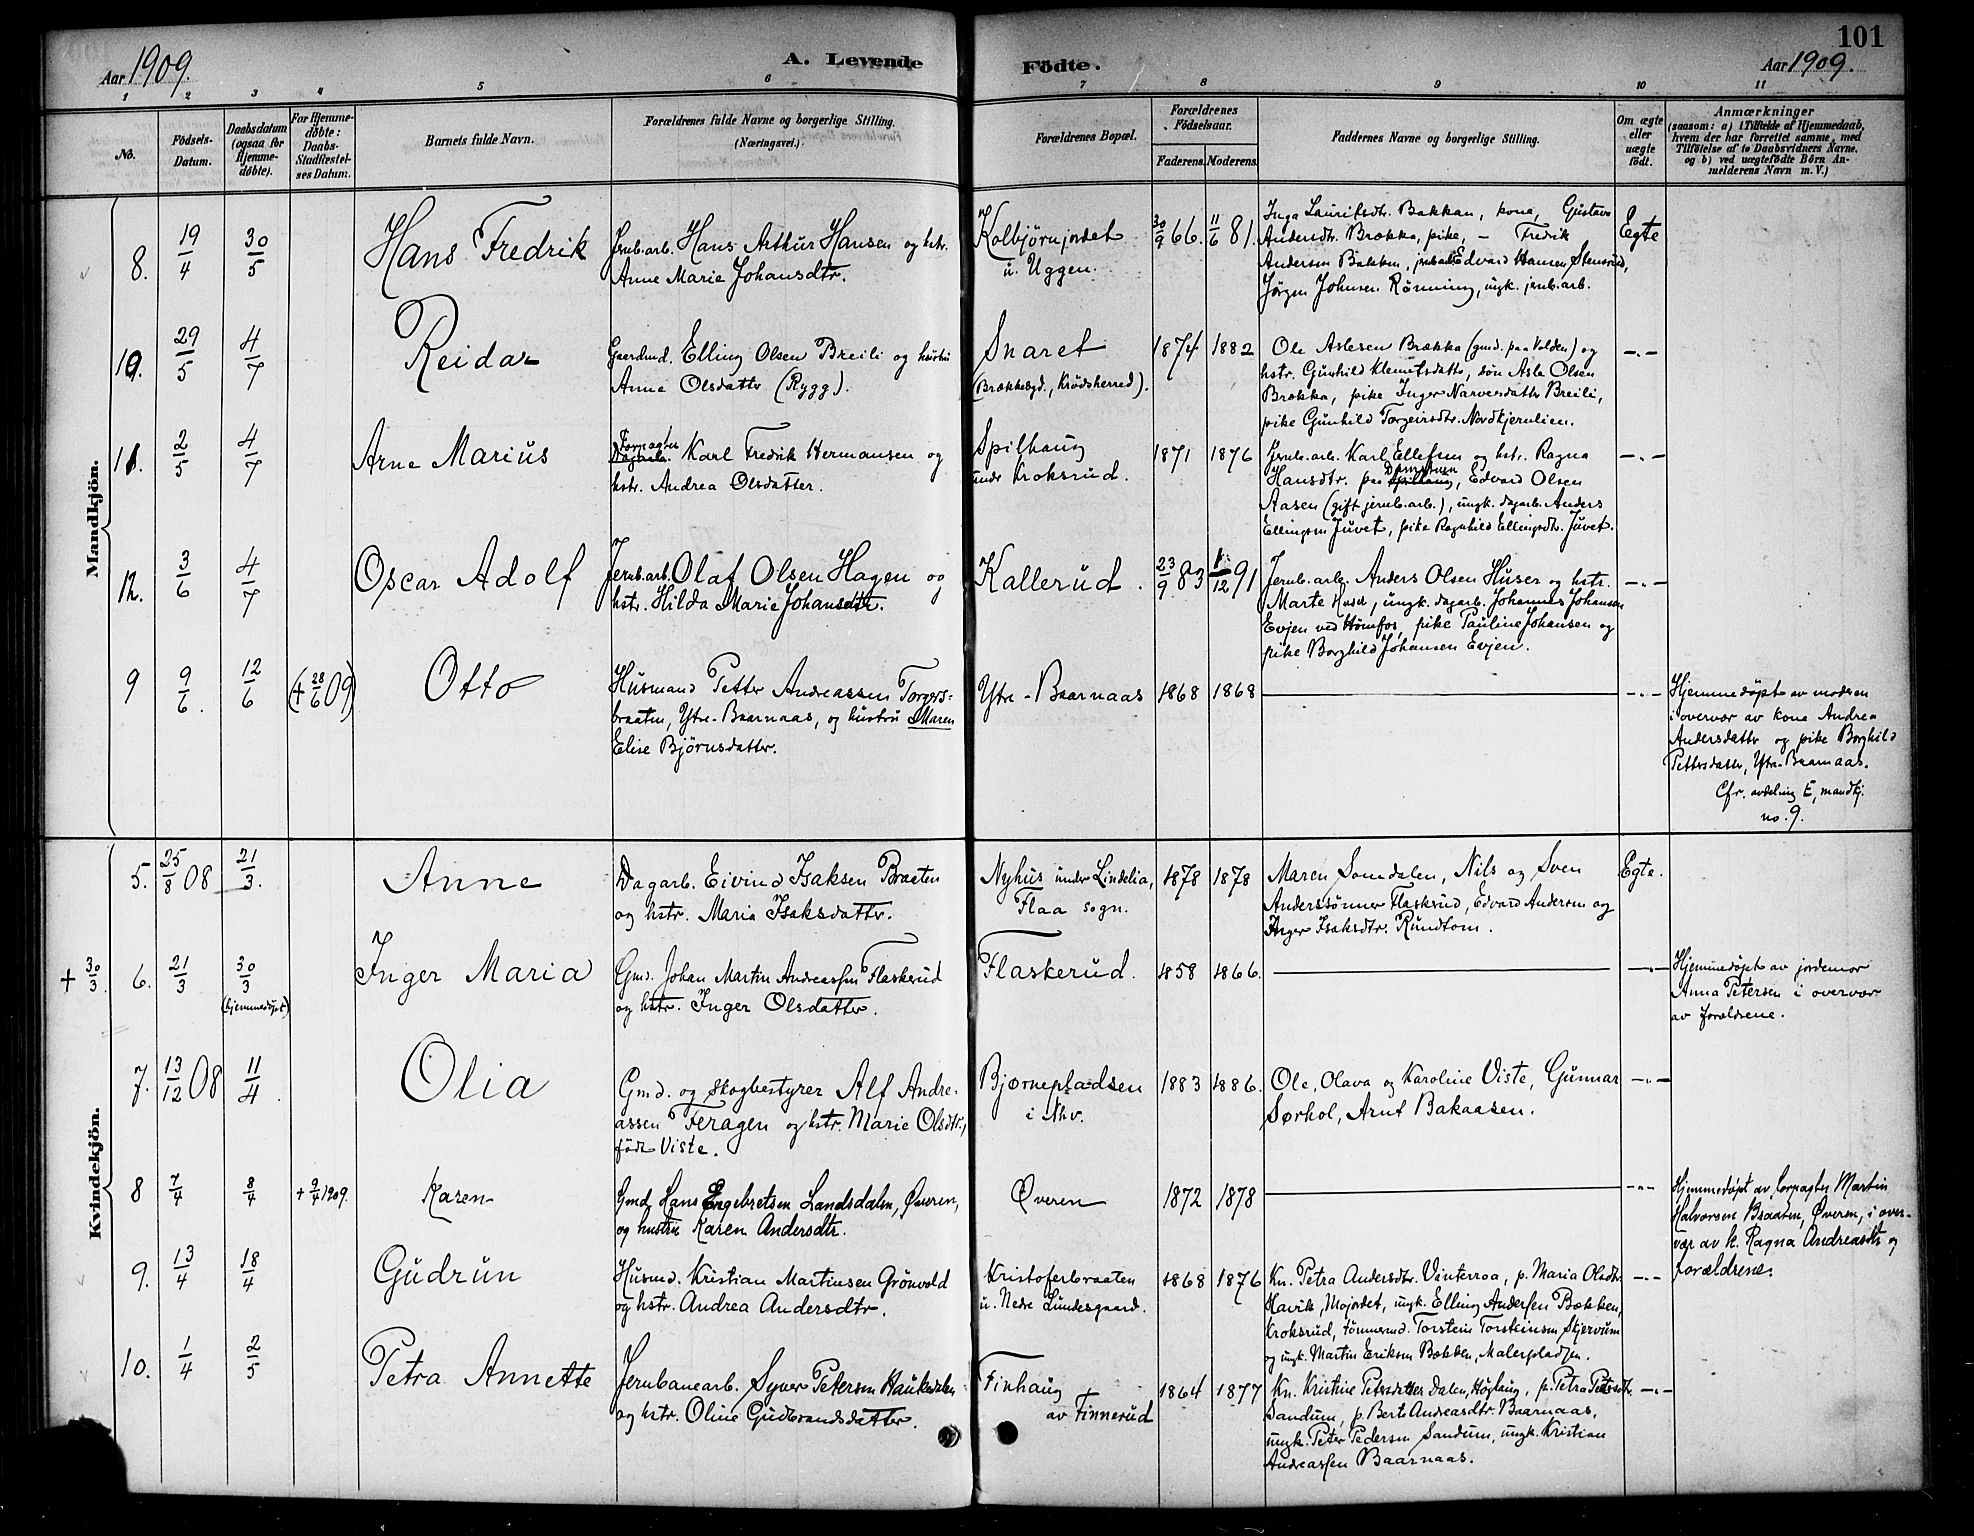 101
Aar 1909.
A. Levende Födte.
Aar 1909.
1 2 3 4 5 6 7 8 9 10 11
No.
Födsels-
Datum.
Daabsdatum
(ogsaa for
Hjemme-
döbte).
For Hjemme-
döbte:
Daabs-
Stadfæstel-
ses Datum.
Barnets fulde Navn.
Forældrenes fulde Navne og borgerlige Stilling.
(Næringsvei.)
Forældrenes Bopæl.
Forældrenes
Födselsaar.
Faderens. Moderens.
Faddernes Navne og borgerlige Stilling.
Om ægte
eller
uægte
födt.
Anmærkninger
(saasom: a) i Tilfælde af Hjemmedaab,
hvem der har forrettet samme, med
Tilföielse af to Daabsvidners Navne,
og b) ved uægtefödte Börn An-
melderens Navn m. V.)
Mandkjön.
8. 19/4 30/5
Hans Fredrik
Jernb.arb. Hans Arthur Hansen og hstr.
Anne Marie Johansdtr.
Kolbjörnjordet
u. Uggen.
30/9 66. 11/6 81.
Inga Lauritsdtr. Bakkan, kone, Gustava
Andersdtr. Brækka, pike, – Fredik
Andersen Bakken, jernb.arb. Edvard Hansen Stensrud,
Jørgen Johnsen Rönning, ungk. jernb.arb.
Egte
10. 29/5 4/7
Reidar
Gaardmd. Elling Olsen Breili og hustru
Anne Olsdatter (Rygg).
Snaret
(Brækkebygd., Krödsherred).
1874 1882
Ole Aslesen Brækka (gmd. paa Volden) og
hstr. Gunhild Klemetsdatter, sön Asle Olsen
Brækka, pike Inger Narvesdatter Breili,
pike Gunhild Torgeirsdtr. Nordkjernlien.
–"–
11. 2/5 4/7
Arne Marius
Forpagter
Dagarb. Karl Fredrik Hermansen og
hstr. Andrea Olsdatter.
Spilhaug
under Kroksrud.
1871 1876
Jernb.arb. Karl Ellefsen og hstr. Ragna
Hansdtr. paa Spilhaug, Edvard Olsen
Aasen (gift jernb.arb.), ungk. dagarb. Anders
Ellingsen Juvet, pike Ragnhild Ellingsdtr. Juvet.
–"–
12. 3/6 4/7
Oscar Adolf
Jernb.arb. Olaf Olsen Hagen og
hstr. Hilda Marie Johansdtr.
Kallerud.
23/9 83 1/12 91
Jernb.arb. Anders Olsen Huser og hstr.
Marte Huser, ungk. dagarb. Johannes Johansen
Evjen ved Hönefos, pike Pauline Johansen og
pike Borghild Johansen Evjen.
–"–
9 9/6. 12/6 (+ 28/6 09)
Otto
Husmand Petter Andreassen Torgers-
braaten, Ytre-Baarnaas, og hustru Maren
Elise Björnsdatter.
Ytre-Baarnaas
1868 1868
–"–
Hjemmedøpt av moderen
i overvær av kone Andrea
Andersdatter og pike Borghild
Pettersdatter, Ytre-Baarnaas.
Cfr. avdeling E, mandkj.
no. 9.
Kvindekjön.
5. 25/8 08 21/3.
Anne
Dagarb. Eivind Isaksen Braaten
og hstr. Maria Isaksdatter.
Nyhus under Lindelia,
Flaa sogn.
1878 1878
Maren Somdalen, Nils og Sven
Anderssönner Flaskerud, Edvard Andersen og
Inger Isaksdtr. Rundtom.
Egte.
+ 30/3. 6. 21/3 30/3
(hjemmedöpt)
Inger Maria
Gmd. Johan Martin Andreassen Flaskerud
og hstr. Inger Olsdatter.
Flaskerud.
1858 1866.
–"–
Hjemmedøpt av jordemor
Anna Petersen i overvær
av forældrene.
7. 13/12 08 11/4.
Olia
Gmd. og skogbestyrer Alf Andre-
assen Feragen og hstr. Marie Olsdtr.,
født Viste.
Bjørnepladsen
i Nhv.
1883 1886.
Ole, Olava og Karoline Viste, Gunnar
Sørhol, Arnt Bakaasen.
–"–
8 7/4 8/4 + 9/4 1909.
Karen
Gmd. Hans Engebretsen Landsdalen, Øveren,
og hustru Karen Andersdtr.
Øveren
1872 1878
–"–
Hjemmedøpt av forpagter Martin
Halvorsen Braaten, Øveren, i over-
vær av k. Ragna Andreasdtr og
forældrene.
9. 13/4 18/4
Gudrun
Husmd. Kristian Martinsen Grönvold
og hstr. Andrea Andersdtr.
Kristoferbraaten
u. Nedre Lundesgaard.
1868 1876
Kn. Petra Andersdtr. Vinterroa, p. Maria Olsdtr.
Havik, Mojordet, ungk. Elling Andersen Bækken,
Kroksrud, tömmermd. Torstein Torsteinsen Skjervum
og ungk. Martin Eriksen Bækken, Malerpladsen.
–"–
10. 1/4 2/5
Petra Annette
Jernbanearb. Syver Petersen Haukedalen
og hstr. Oline Gudbrandsdatter.
Finhaug
av Finnerud
1864 1877
Kn. Kristine Petersdatter Dalen, Høghaug, p. Petra Petersdtr.
Sandum, p. Berte Andreasdtr. Baarnaas,
ungk. Peter Pedersen Sandum, ungk. Kristian
Andreassen Baarnaas.
–"–